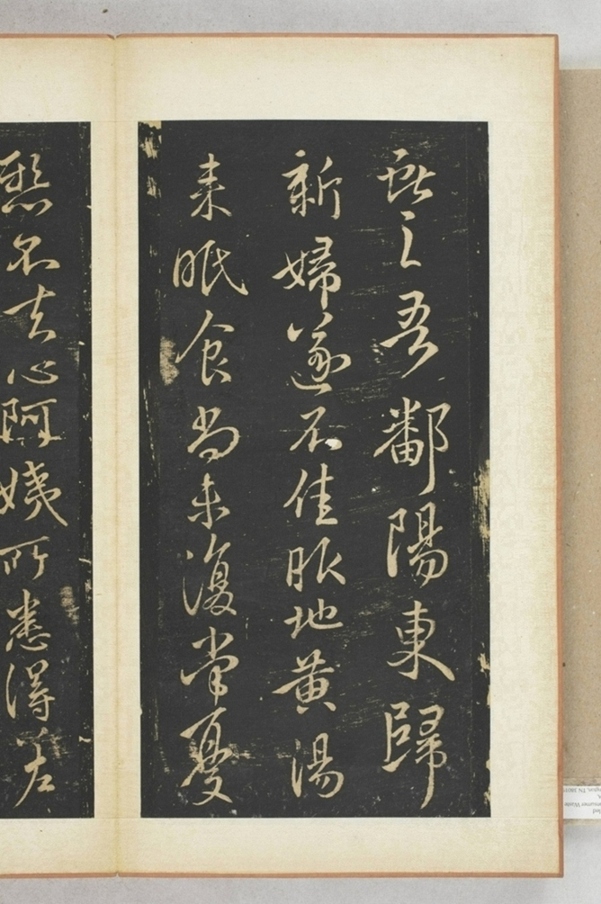 獻之吾鄱陽東歸
新婦遂不佳服地黃湯
来眠食尚未復常憂
懸不去心阿姨所患得差